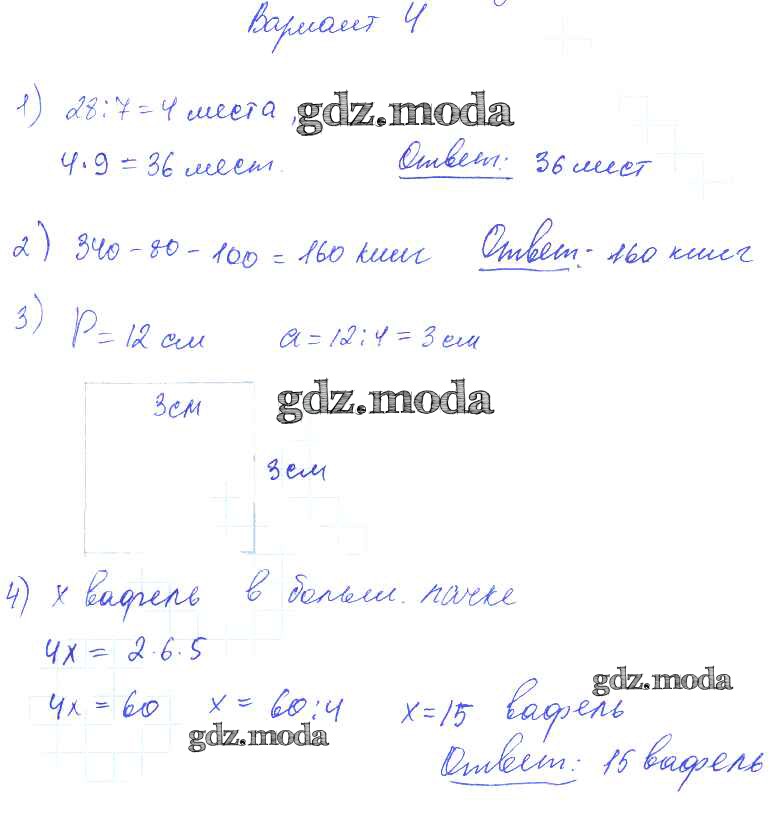 Вариант 4
1) 28:7=4 места, gdz.moda
4·9=36 мест. Ответ: 36 мест
2) 340-80-100=160 книг Ответ: 160 книг
3) P=12 см a=12:4=3 см
3 см gdz.moda
3 см
4) x вафель в больш. пачке
4x = 2·6·5
gdz.moda
4x = 60 x = 60:4 x=15 вафель
gdz.moda
Ответ: 15 вафель